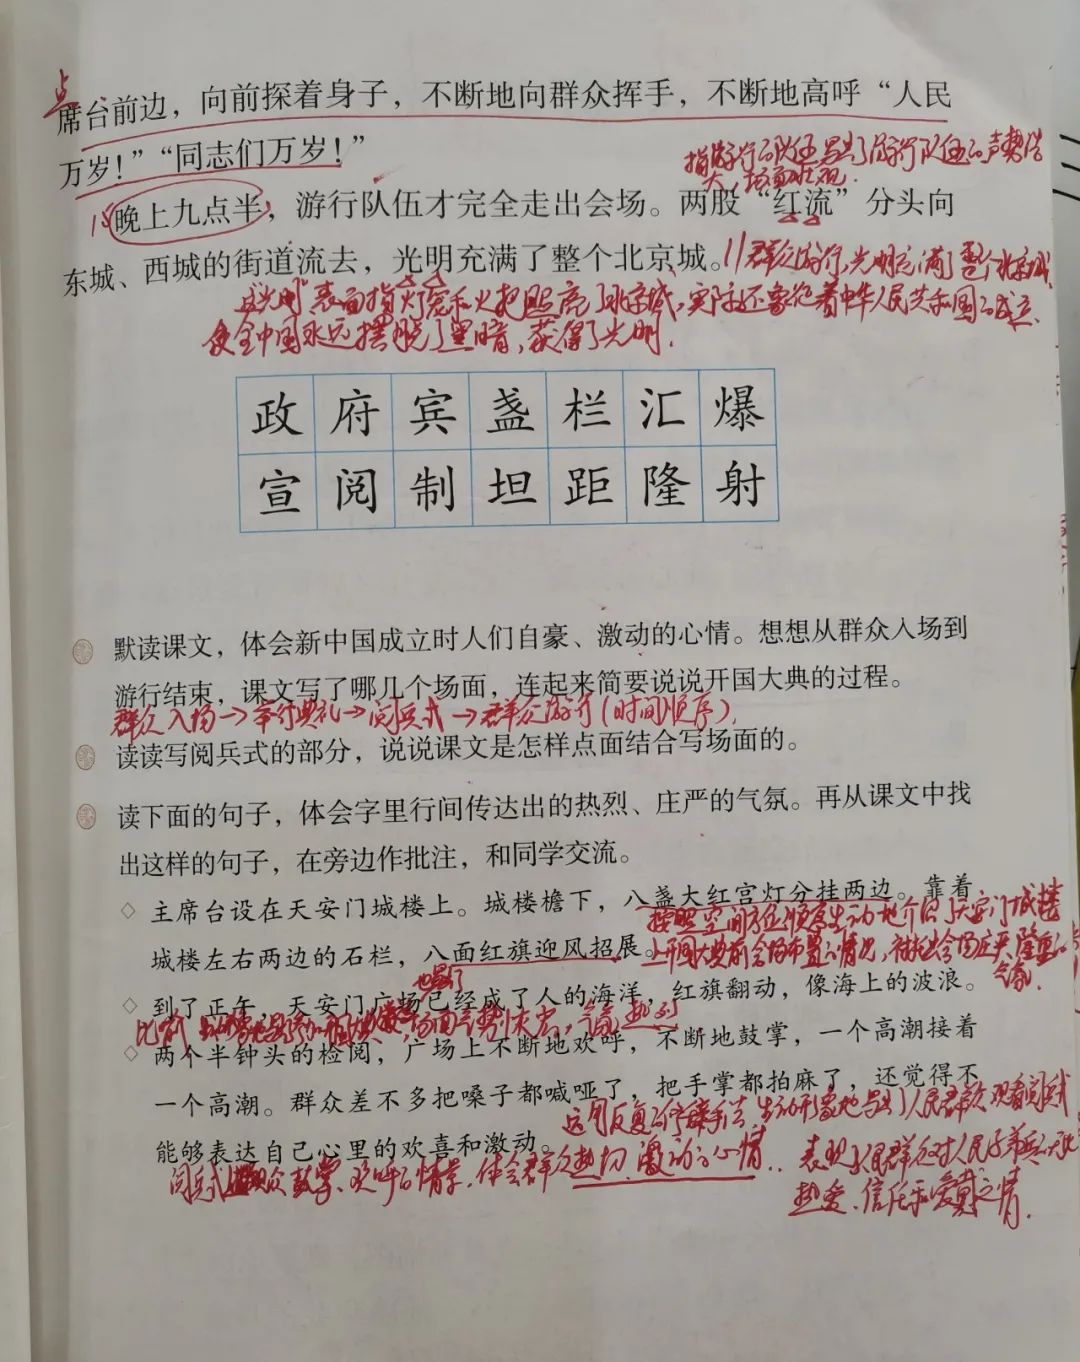 点
席台前边，向前探着身子，不断地向群众挥手，不断地高呼“人民
万岁！”“同志们万岁！”
指游行的队伍写出了游行队伍的声势浩
大，场面壮观.
15晚上九点半，游行队伍才完全走出会场。两股“红流”分头向
东城、西城的街道流去，光明充满了整个北京城。//群众游行,光明充满了整个北京城.
“光明”表面指灯笼和火把照亮了北京城,实际还象征着中华人民共和国的成立,
使全中国永远摆脱了黑暗,获得了光明.
政 府 宾 盏 栏 汇 爆
宣 阅 制 坦 距 隆 射
默读课文，体会新中国成立时人们自豪、激动的心情。想想从群众入场到
游行结束，课文写了哪几个场面，连起来简要说说开国大典的过程。
群众入场→举行典礼→阅兵式→群众游行(时间顺序).
读读写阅兵式的部分，说说课文是怎样点面结合写场面的。
读下面的句子，体会字里行间传达出的热烈、庄严的气氛。再从课文中找
出这样的句子，在旁边作批注，和同学交流。
◇ 主席台设在天安门城楼上。城楼檐下，八盏大红宫灯分挂两边。靠着
按照空间方位顺序生动地介绍了天安门城楼
城楼左右两边的石栏，八面红旗迎风招展。
上开国大典前会场布置的情况,衬托出会场庄严、隆重的
气氛.
◇ 到了正午，天安门广场已经成了人的海洋，红旗翻动，像海上的波浪。
比喻 场面气势 气氛热烈
◇ 两个半钟头的检阅，广场上不断地欢呼，不断地鼓掌，一个高潮接着
一个高潮。群众差不多把嗓子都喊哑了，把手掌都拍麻了，还觉得不
这句反复的修辞手法,生动形象地写出了人民群众观看阅兵式
能够表达自己心里的欢喜和激动。
阅兵式 群众鼓掌、欢呼的情景,体会群众热切、激动的心情. 表现了人民群众对人民子弟兵
热爱、信任和爱戴之情.